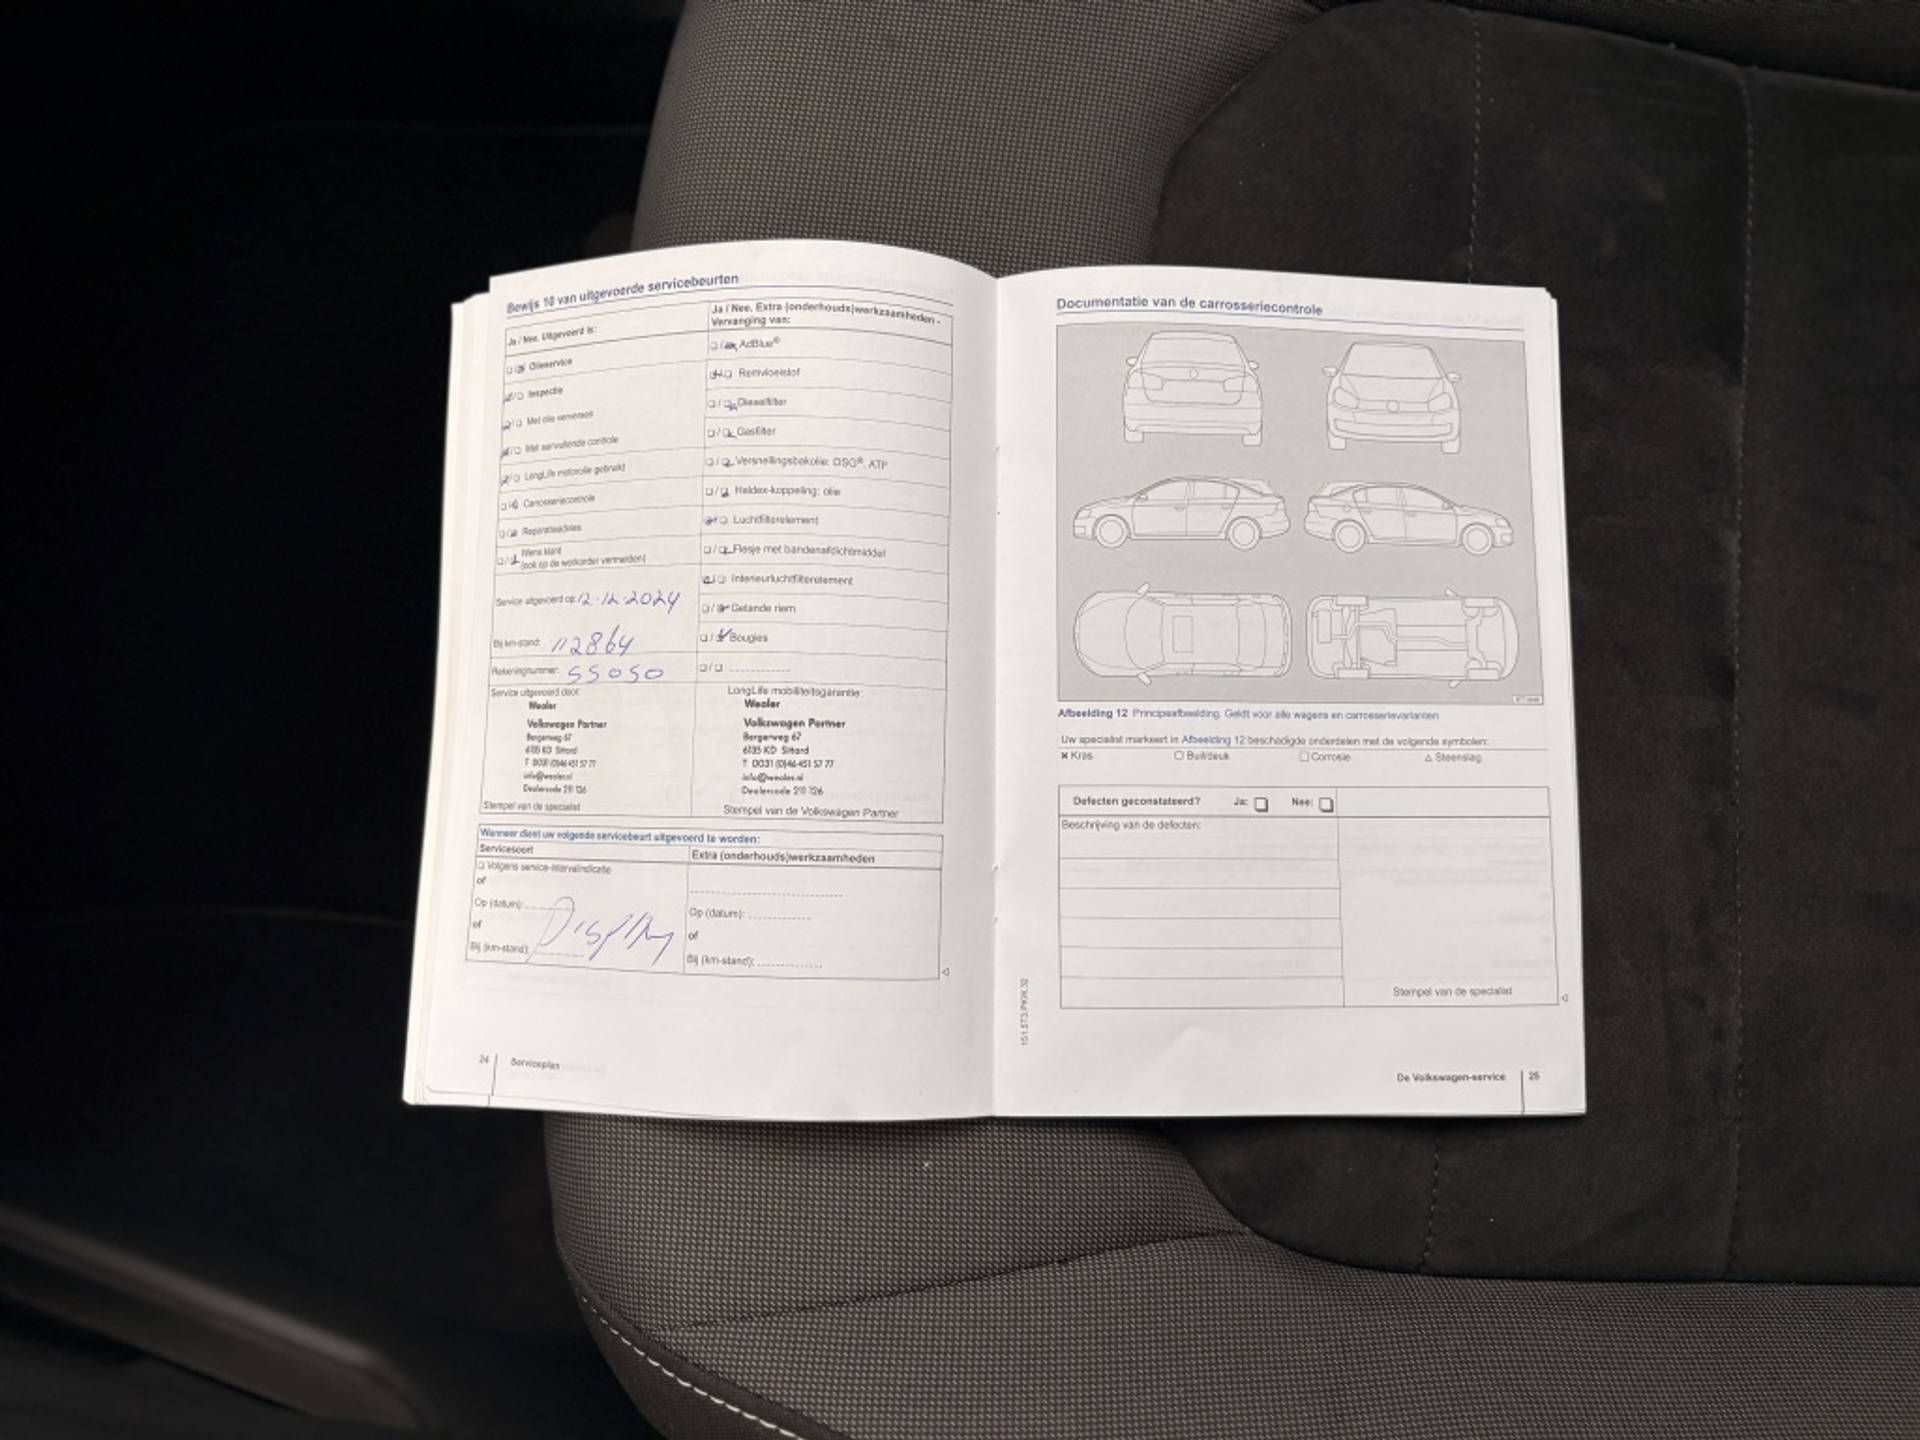 Bewijs 10 van uitgevoerde servicebeurten
Ja / Nee. Uitgevoerd is:
Olieservice
Inspectie
Met olie verversen
Met aanvullende controle
LongLife motorolie gebruikt
Carrosseriecontrole
Reparatieadvies
Wens klant
(ook op de werkorder vermelden)
Service uitgevoerd op: 12.12.2024
Bij km-stand: 112864
Rekeningnummer: 55050
Service uitgevoerd door:
Wealer
Volkswagen Partner
Bergerweg 67
6135 KD Sittard
T 0031 (0)46 451 57 77
info@wealer.nl
Dealercode 211 126
Stempel van de specialist
Ja / Nee. Extra (onderhouds)werkzaamheden -
Vervanging van:
AdBlue®
Remvloeistof
Dieselfilter
Gasfilter
Versnellingsbakolie: DSG®, ATF
Haldex-koppeling: olie
Luchtfilterelement
Flesje met bandenafdichtmiddel
Interieurluchtfilterelement
Getande riem
Bougies
LongLife mobiliteitsgarantie:
Wealer
Volkswagen Partner
Bergerweg 67
6135 KD Sittard
T 0031 (0)46 451 57 77
info@wealer.nl
Dealercode 211 126
Stempel van de Volkswagen Partner
Wanneer dient uw volgende servicebeurt uitgevoerd te worden:
Servicesoort
Volgens service-intervalindicatie
of
Op (datum):
of
Bij (km-stand):
Display
Extra (onderhouds)werkzaamheden
Op (datum):
of
Bij (km-stand):
24 Serviceplan
Documentatie van de carrosseriecontrole
Afbeelding 12 Principeafbeelding. Geldt voor alle wagens en carrosserievarianten
Uw specialist markeert in Afbeelding 12 beschadigde onderdelen met de volgende symbolen:
Kras Buil/deuk Corrosie Steenslag
Defecten geconstateerd? Ja: Nee:
Beschrijving van de defecten:
Stempel van de specialist
151.5T3.PKW.32
De Volkswagen-service 25